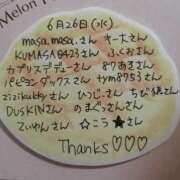 Melon
6月26日(水)
masa.masa.さん キー太さん
KUMASA8423さん ふくおさん
カプリスデデューさん 87あきさん
パピヨンダックスさん tym8753さん
zizikubbyさん ひつじーさん ちび銀さん
DUSKINさん のまぐっさんさん
てぃゆんさん ☆こう★さん
Thanks♡♡♡